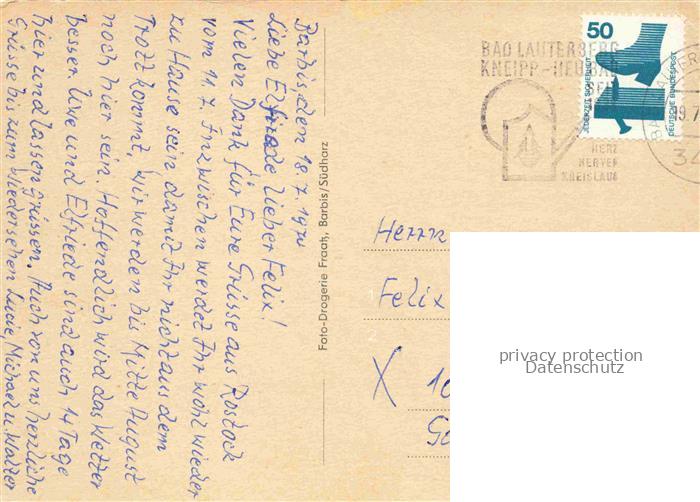 Barbis, den 18.7.1974
Liebe Elfriede lieber Felix!
Vielen Dank für Eure Grüsse aus Rostock
vom 11.7. Inzwischen werdet Ihr wohl wieder
zu Hause sein, damit Ihr nicht aus dem
Trott kommt, wir werden bis Mitte August
noch hier sein. Hoffendlich wird das Wetter
besser Uwe und Elfriede sind auch 14 Tage
hier und lassen grüssen. Auch von uns herzliche
Grüsse bis zum Wiedersehen Lucie, Michael u. Walter
Foto-Drogerie Fraatz, Barbis/Südharz
BAD LAUTERBERG
KNEIPP-HEILBAD
HERZ
NERVEN
KREISLAUF
50
JEDERZEIT SICHERHEIT
DEUTSCHE BUNDESPOST
Herrn
Felix
X 10
privacy protection
Datenschutz